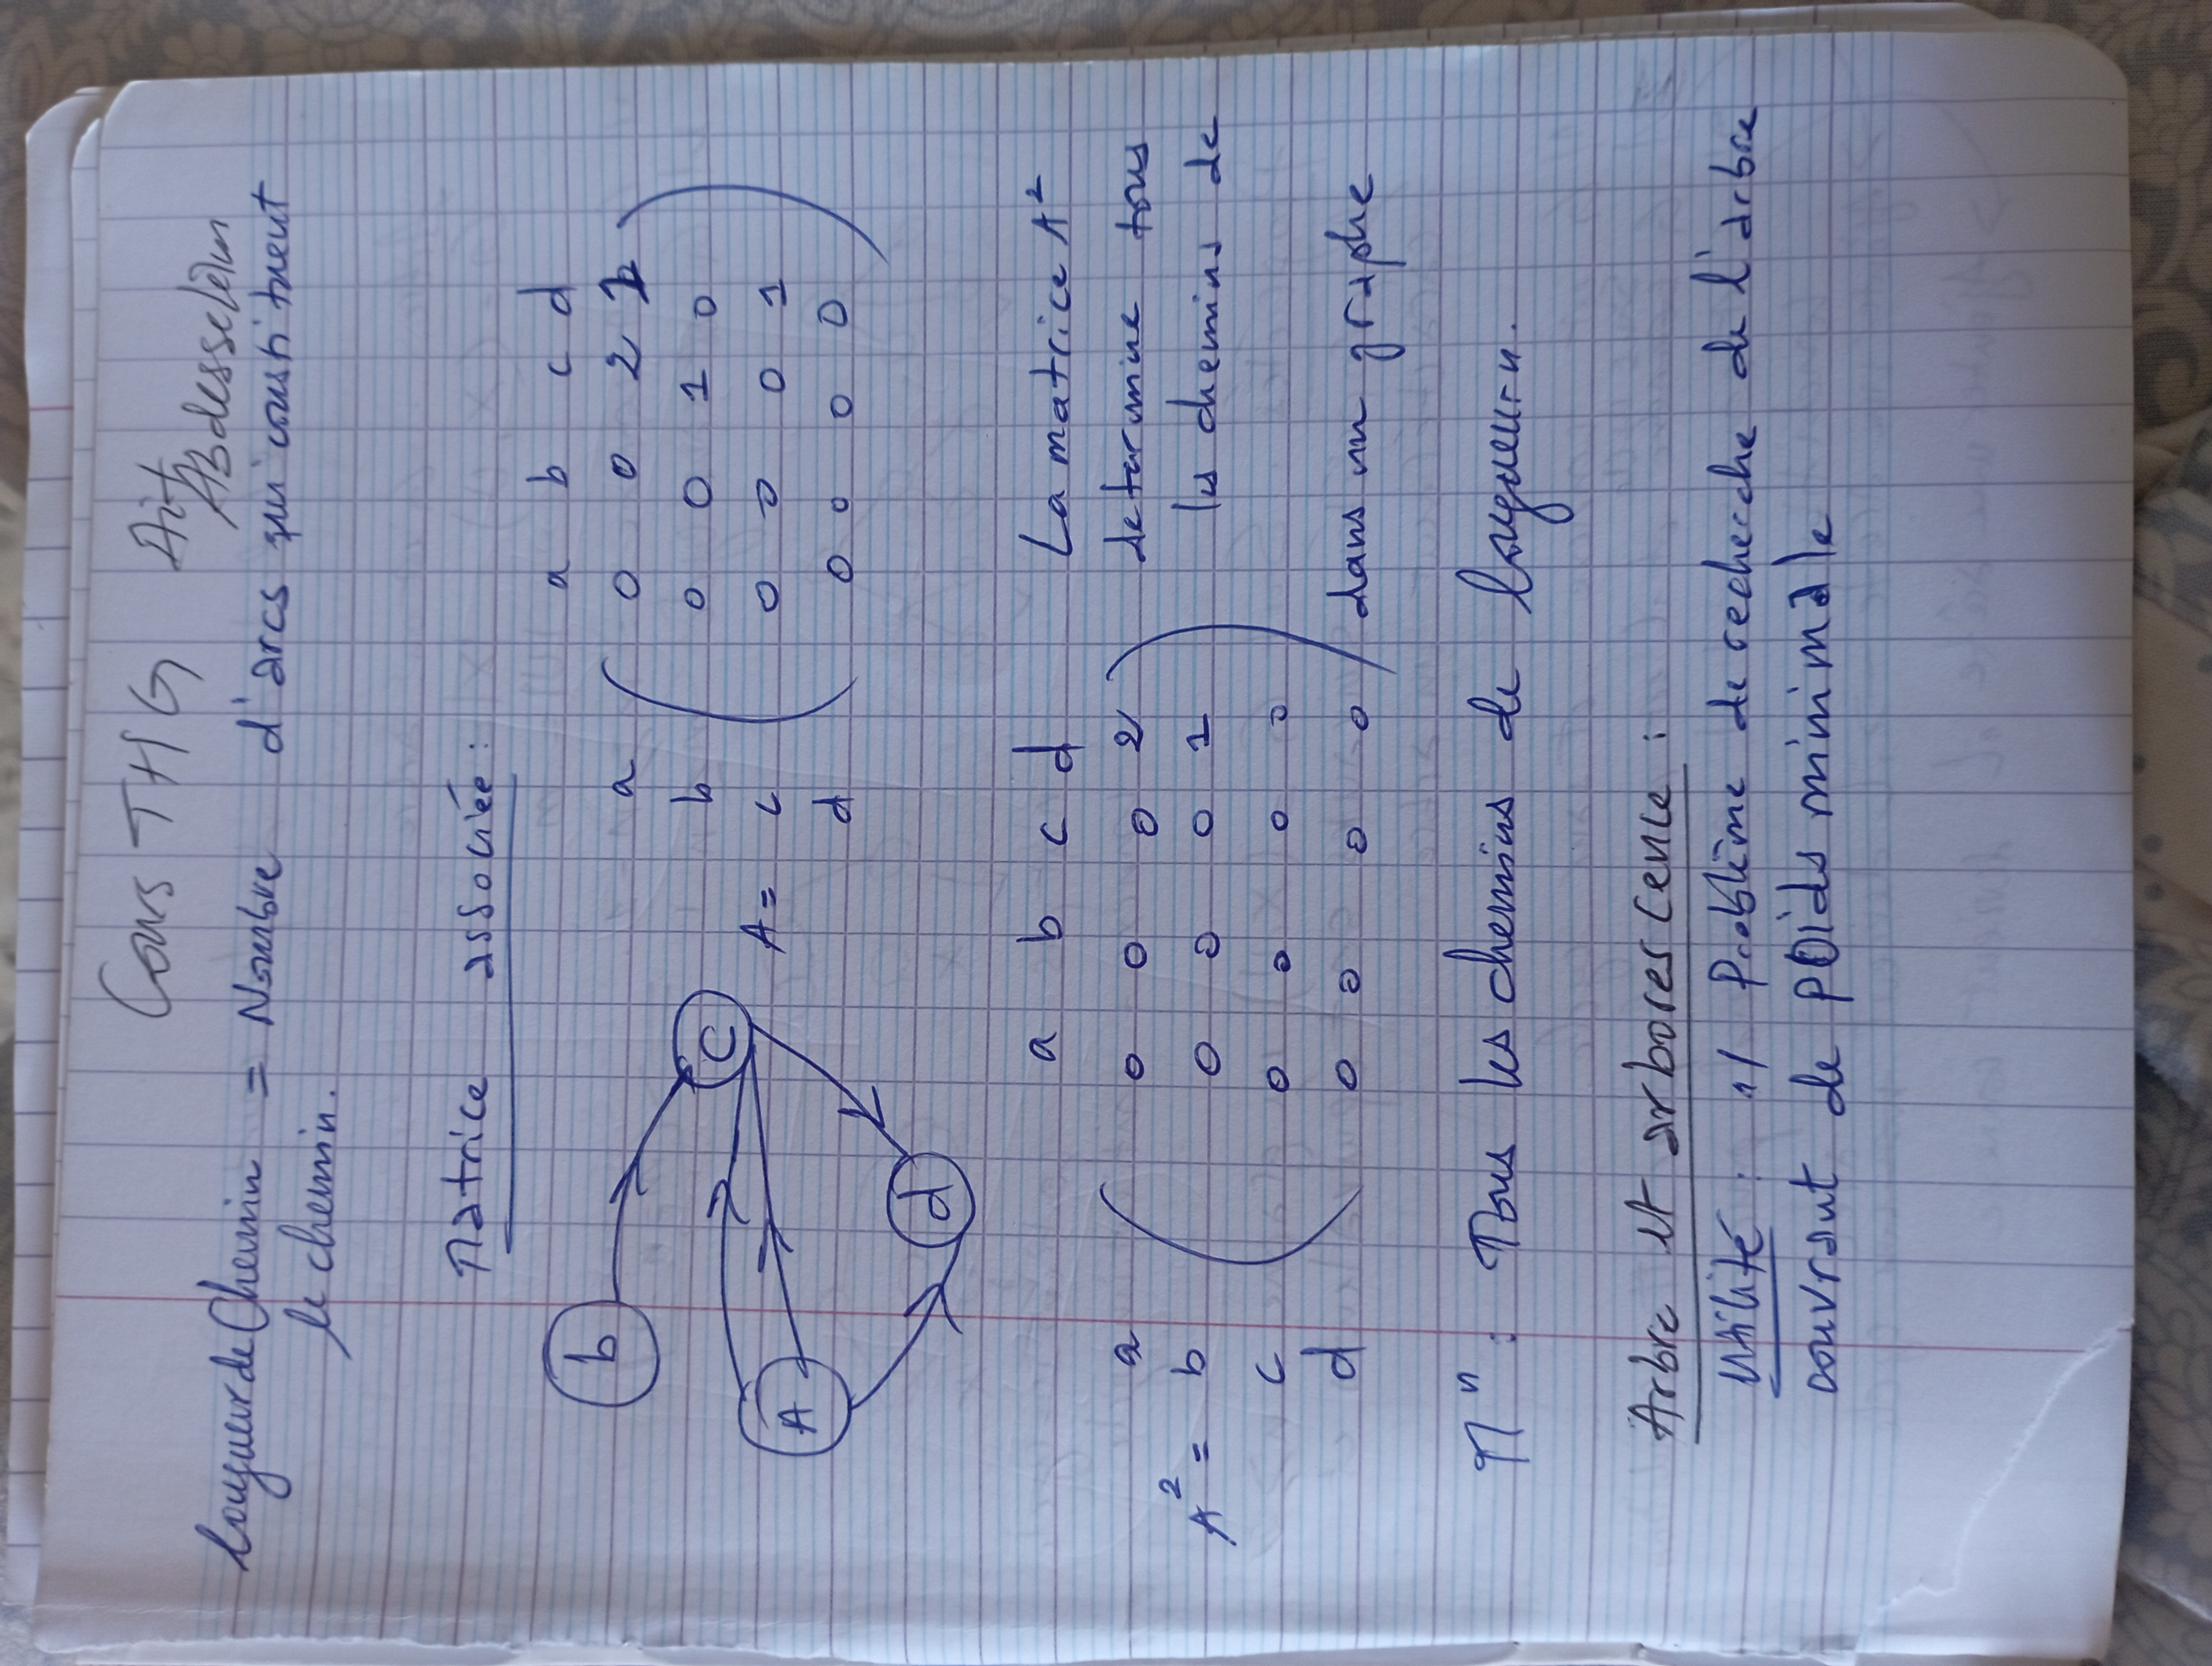 Cours THG Ait Abdesselam
longueur de Chemin = Nombre d'arcs qui constituent
le chemin.
Matrice associée :
b
A
C
d
a b c d
a 0 0 2 1
b 0 0 1 0
A = c 0 0 0 1
d 0 0 0 0
a b c d
a 0 0 0 2
A² = b 0 0 0 1
c 0 0 0 0
d 0 0 0 0
La matrice A²
determine tous
les chemins de
dans un graphe
Mⁿ : Tous les chemins de longueur n.
Arbre et arborescence :
Utilité : 1/ Problème de recherche de l'arbre
couvrant de poids minimale